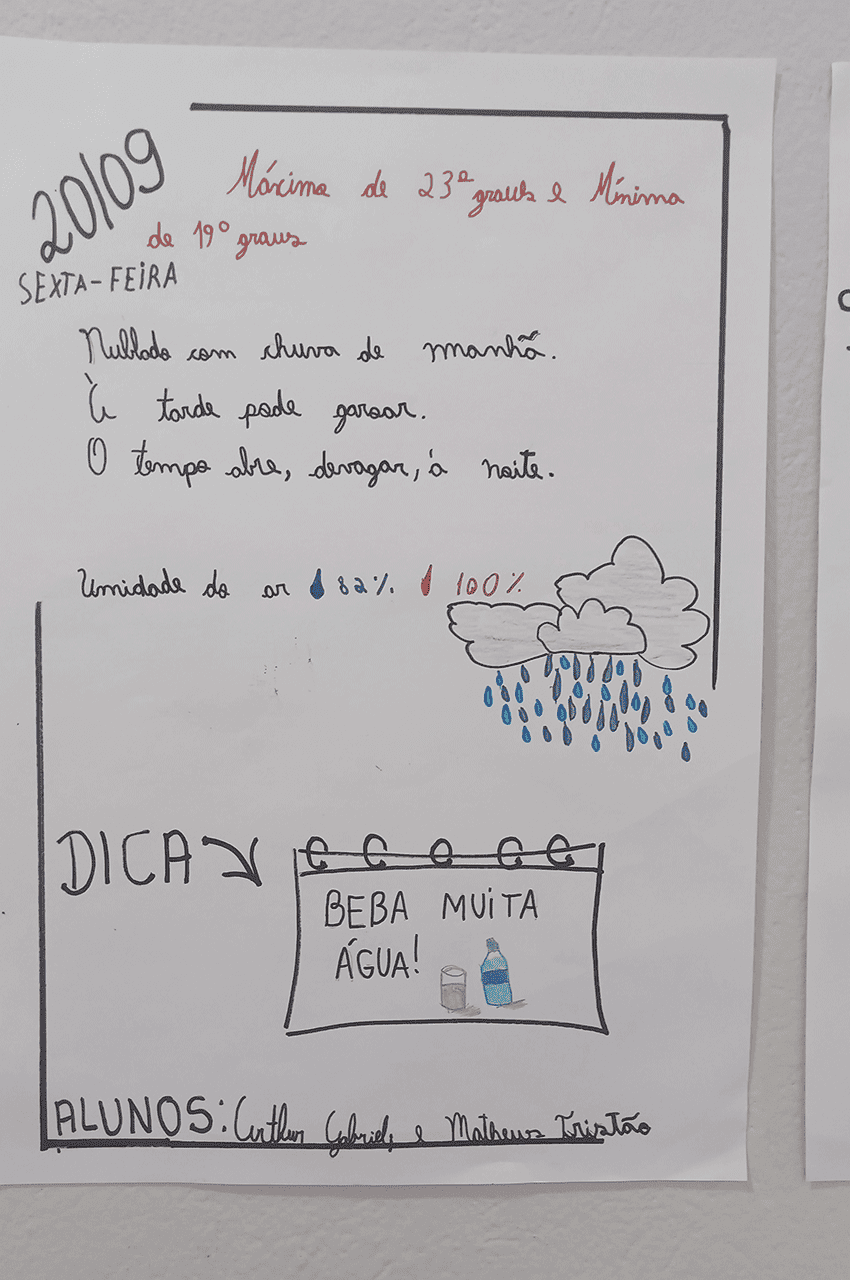 20/09
SEXTA-FEIRA
Máxima de 23ª graus e Mínima
de 19º graus
Nublado com chuva de manhã.
À tarde pode garoar.
O tempo abre, devagar, à noite.
Umidade do ar 82% 100%
DICA
BEBA MUITA
ÁGUA!
ALUNOS: Arthur Gabriel, e Matheus Tristão